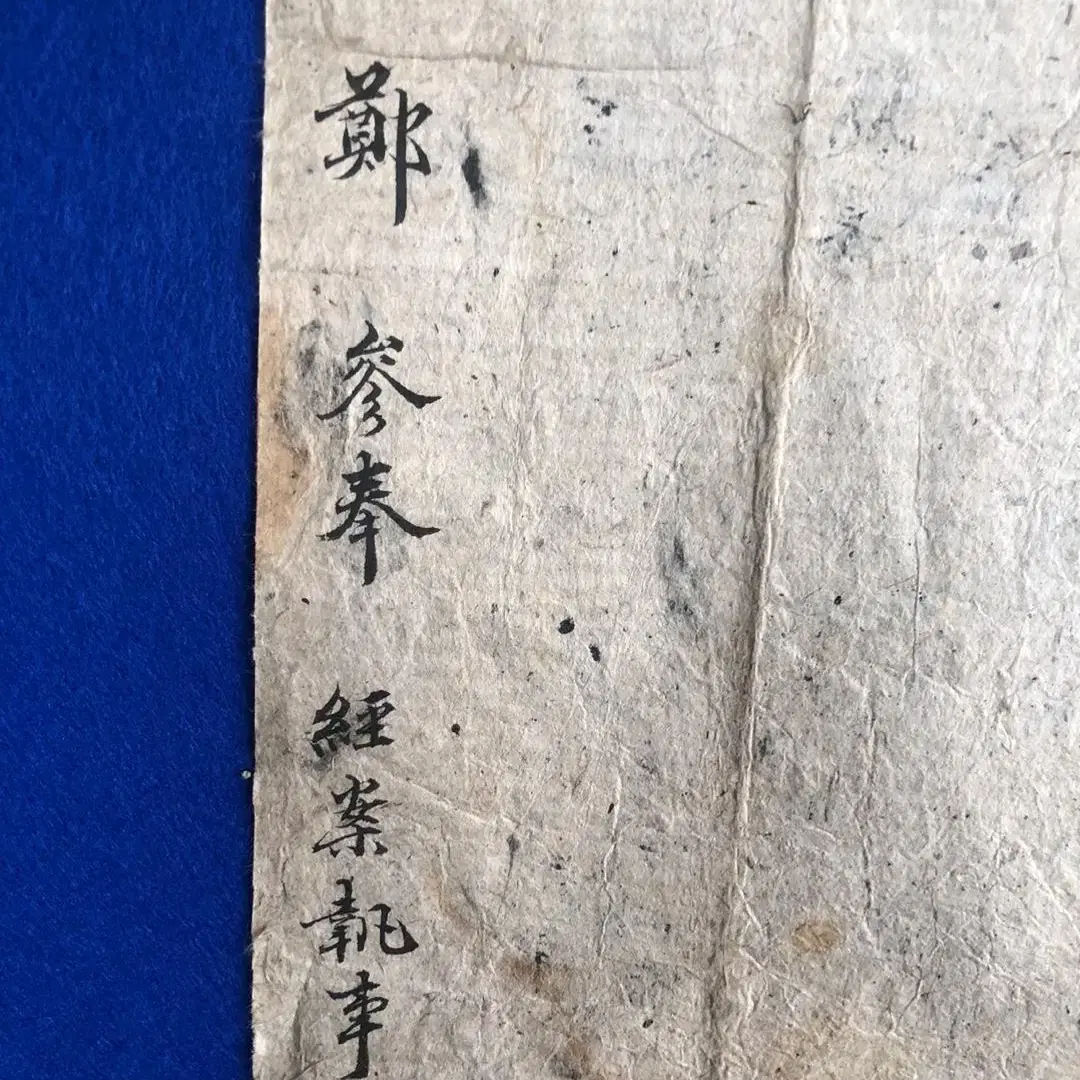 鄭 參奉 經案執事